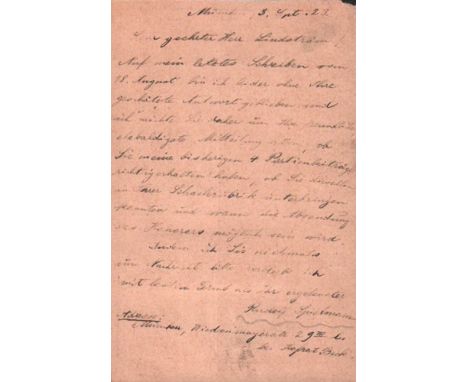 3. Spt. 23
geehrter Herr Lindström!
Auf mein letztes Schreiben vom
18. August bin ich leider ohne Ihre
geschätzte Antwort geblieben und
ich möchte Sie daher um Ihre
Mitteilung bitten, ob
Sie meine bisherigen 4 Partienbeiträge
richtig erhalten haben, ob Sie dieselben
in Ihrer Schachrubrik unterbringen
konnten und wann die Absendung
des Honorars möglich sein wird
Indem ich Sie nochmals
um Nachricht bitte verbleibe ich
mit besten Gruß als Ihr ergebenster
Rudolf Spielmann
Adresse:
München, Wiedenmayerstr. 29 III bei